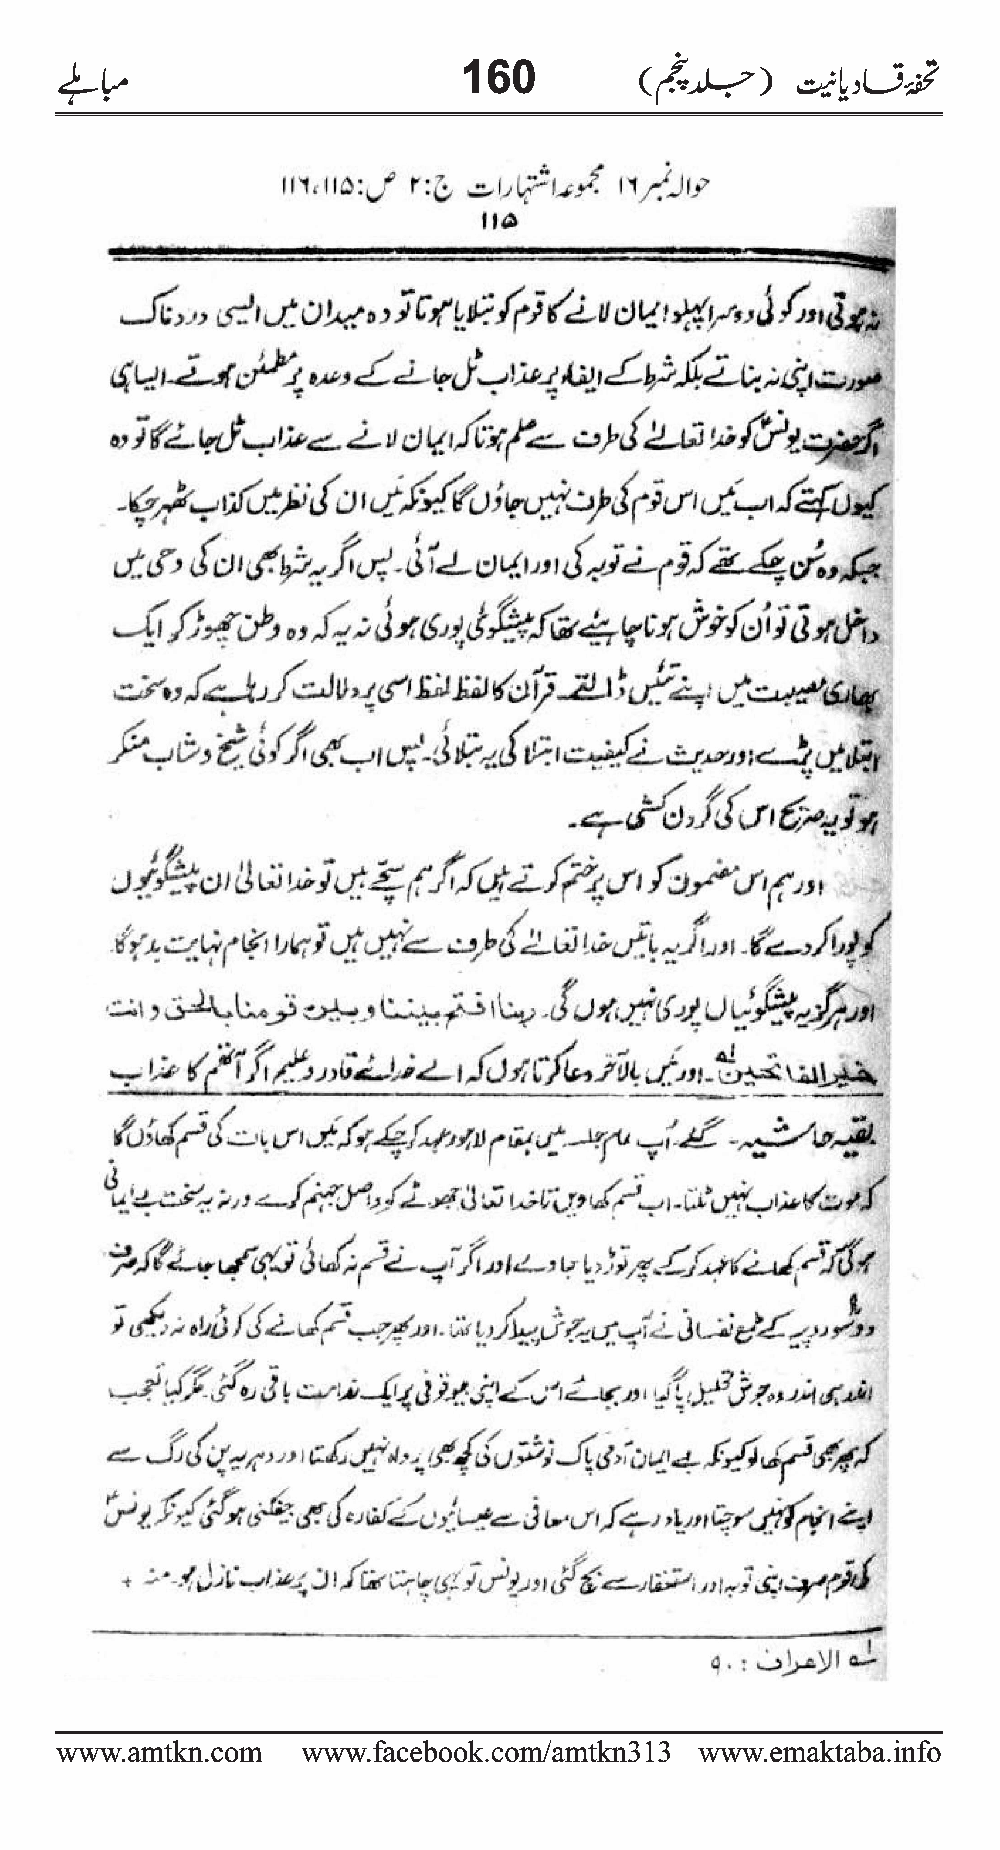 تحفۂ قادیانیت (جلد پنجم) 160 مباہلے
حوالہ نمبر ۱۶ مجموعہ اشتہارات ج:۲ ص:۱۱۵،۱۱۶
۱۱۵
نہ ہوتی اور کوئی دوسرا پہلو ایمان لانے کا قوم کو بتلایا ہوتا تو وہ میدان میں ایسی دردناک
صورت اپنی نہ بناتے بلکہ شرط کے ایفاء پر عذاب ٹل جانے کے وعدہ پر مطمئن ہوتے۔ ایسا ہی
اگر حضرت یونسؑ کو خدا تعالےٰ کی طرف سے علم ہوتا کہ ایمان لانے سے عذاب ٹل جائے گا تو وہ
کیوں کہتے کہ اب مَیں اس قوم کی طرف نہیں جاؤں گا کیونکہ مَیں ان کی نظر میں کذاب ٹھہر چکا۔
جبکہ وہ سُن چکے تھے کہ قوم نے توبہ کی اور ایمان لے آئی۔ پس اگر یہ شرط بھی ان کی وحی میں
داخل ہوتی تو اُن کو خوش ہونا چاہیئے تھا کہ پیشگوئی پوری ہوئی نہ یہ کہ وہ وطن چھوڑ کر ایک
بھاری مصیبت میں اپنے تئیں ڈالتے۔ قرآن کا لفظ لفظ اسی پر دلالت کر رہا ہے کہ وہ سخت
ابتلا میں پڑے اور حدیث نے کیفیت ابتلا کی یہ بتلائی۔ پس اب بھی اگر کوئی شیخ و شاب منکر
ہو تو یہ صریح اس کی گردن کشی ہے۔
اور ہم اس مضمون کو اس پر ختم کرتے ہیں کہ اگر ہم سچے ہیں تو خدا تعالیٰ ان پیشگوئیوں
کو پورا کر دے گا۔ اور اگر یہ باتیں خدا تعالےٰ کی طرف سے نہیں ہیں تو ہمارا انجام نہایت بد ہوگا۔
اور ہرگز یہ پیشگوئیاں پوری نہیں ہوں گی۔ ربنا افتح بیننا و بین قومنا بالحق و انت
خیر الفاتحین لہ۔ اور مَیں بالآخر دعا کرتا ہوں کہ اے خدائے قادر و علیم اگر آتھم کا عذاب
بقیہ حاشیہ۔ گئے۔ آپ عام جلسہ میں بمقام لاہور عہد کر چکے ہو کہ مَیں اس بات کی قسم کھاؤں گا
کہ موت کا عذاب نہیں ٹلتا۔ اب قسم کھاویں تا خدا تعالیٰ جھوٹے کو واصل جہنم کرے ورنہ یہ سخت بے ایمانی
ہوگی کہ قسم کھانے کا عہد کر کے پھر توڑ دیا جاوے اور اگر آپ نے قسم نہ کھائی تو یہی سمجھا جائے گا کہ صرف
دوسو روپیہ کے طمع نفسانی نے آپ میں یہ جوش پیدا کر دیا تھا۔ اور پھر جب قسم کھانے کی کوئی راہ نہ دیکھی تو
اندر ہی اندر وہ جوش تحلیل پا گیا اور بجائے اس کے اپنی بیوقوفی پر ایک ندامت باقی رہ گئی۔ مگر کیا تعجب
کہ پھر بھی قسم کھا لو کیونکہ بے ایمان آدمی پاک نوشتوں کی کچھ بھی پرواہ نہیں رکھتا اور دہریہ پن کی رگ سے
اپنے انجام کو نہیں سوچتا اور یاد رہے کہ اس معافی سے عیسائیوں کے کفارہ کی بھی بیخکنی ہوگئی کیونکہ یونسؑ
کی قوم صرف اپنی توبہ اور استغفار سے بچ گئی اور یونس تو یہی چاہتا تھا کہ ان پر عذاب نازل ہو۔ منہ +
لہ الاعراف : ۹۰
www.amtkn.com www.facebook.com/amtkn313 www.emaktaba.info